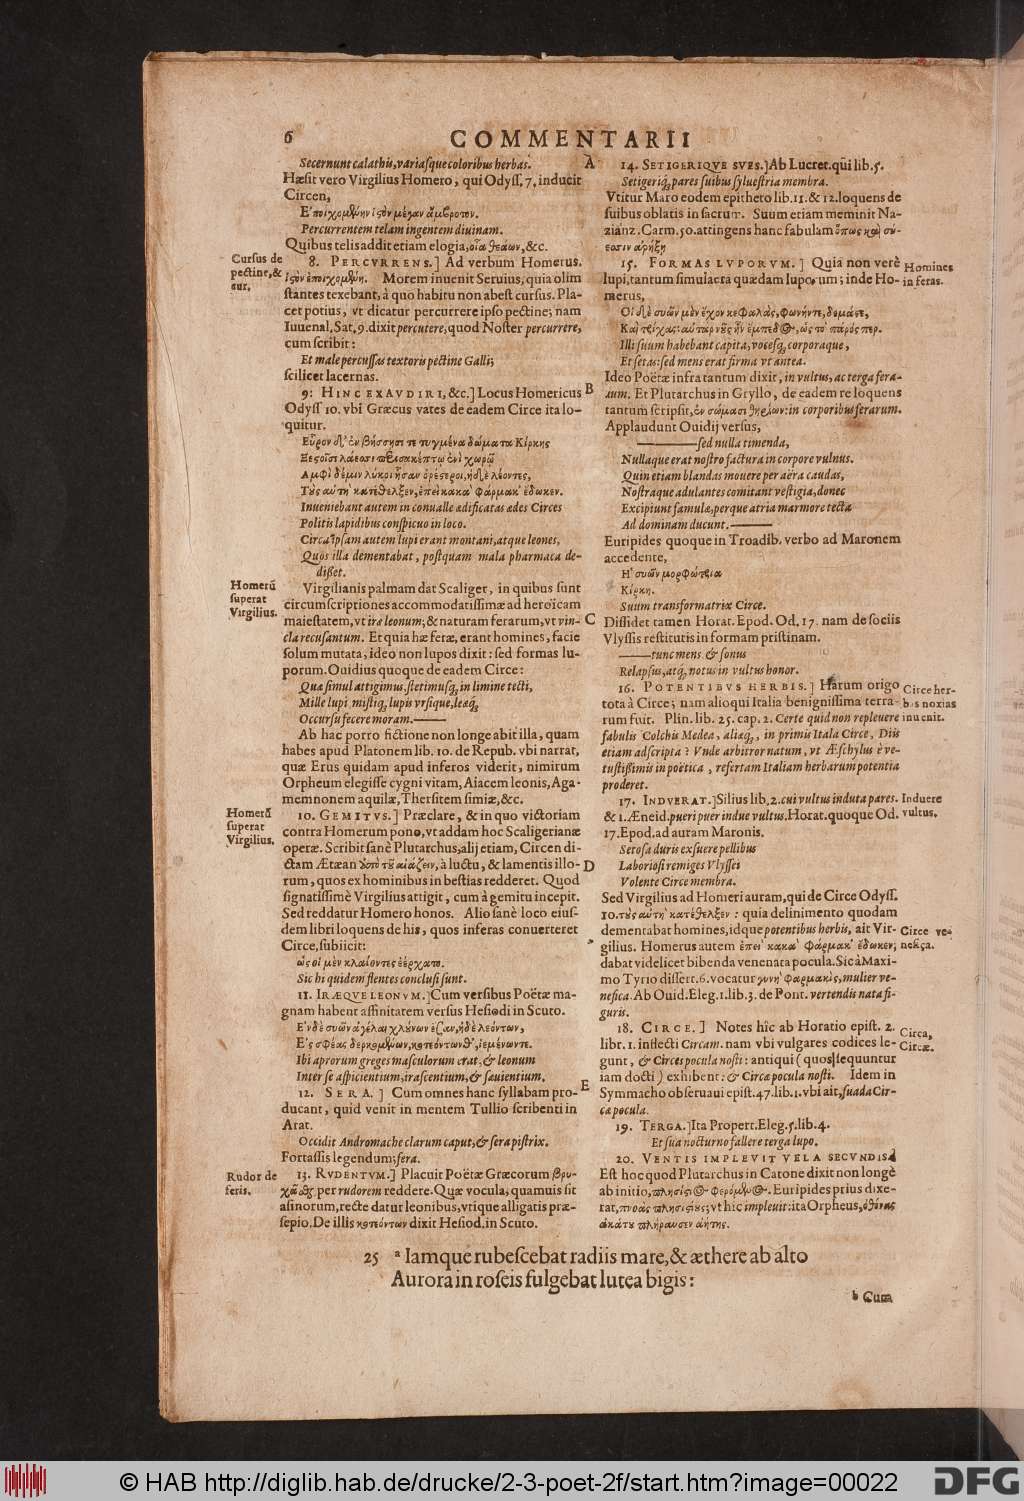 6 COMMENTARII
Secernunt calathis, variasque coloribus herbas.
Hæsit vero Virgilius Homero, qui Odyss. 7. inducit
Circen,
Percurrentem telam ingentem diuinam.
Quibus telis addit etiam elogia, οἷα θεάων, &c.
Cursus de
pectine, &
aur.
8. PERCVRRENS.] Ad verbum Homerus.
ἱςὸν ἐποιχομβύη. Morem inuenit Seruius, quia olim
stantes texebant, à quo habitu non abest cursus. Pla-
cet potius, vt dicatur percurrere ipso pectine; nam
Iuuenal. Sat. 9. dixit percutere, quod Noster percurrere,
cum scribit:
Et male percussas textoris pectine Galli;
scilicet lacernas.
9: HINC EXAVDIRI, &c.] Locus Homericus
Odyss 10. vbi Græcus vates de eadem Circe ita lo-
quitur.
Εὗρον δ' ἐν βήσσησι τετυγμένα δώματα Κίρκης
Ξεςοῖσι λάεσσι
Ἀμφὶ δέ μιν λύκοι ἦσαν ὀρέςεροι, ἠδὲ λέοντες,
Τοὺς αὐτὴ κατέθελξεν, ἐπεὶ κακὰ φάρμακ' ἔδωκεν.
Inueniebant autem in conualle ædificatas ædes Circes
Politis lapidibus conspicuo in loco.
Circa ipsam autem lupi erant montani, atque leones,
Quos illa dementabat, postquam mala pharmaca de-
disset.
Homerū
superat
Virgilius.
Virgilianis palmam dat Scaliger, in quibus sunt
circumscriptiones accommodatissimæ ad heroicam
maiestatem, vt iræ leonum; & naturam ferarum, vt vin-
cla recusantum. Et quia hæ feræ, erant homines, facie
solum mutata, ideo non lupos dixit: sed formas lu-
porum. Ouidius quoque de eadem Circe:
Quæ simul attigimus, stetimusq, in limine tecti,
Mille lupi, mistiq, lupis vrsique, leæq,
Occursu fecere moram.
Ab hac porro fictione non longe abit illa, quam
habes apud Platonem lib. 10. de Repub. vbi narrat,
quæ Erus quidam apud inferos viderit, nimirum
Orpheum elegisse cygni vitam, Aiacem leonis, Aga-
memnonem aquilæ, Thersitem simiæ, &c.
Homerū
superat
Virgilius.
10. GEMITVS.] Præclare, & in quo victoriam
contra Homerum pono, vt addam hoc Scaligerianæ
operæ. Scribit sanè Plutarchus, alij etiam, Circen di-
ctam Ætæan ἀπὸ τοῦ αἰάζειν, à luctu, & lamentis illo-
rum, quos ex hominibus in bestias redderet. Quod
signatissimè Virgilius attigit, cum à gemitu incepit.
Sed reddatur Homero honos. Alio sanè loco eius-
dem libri loquens de his, quos inferas conuerteret
Circe, subiicit:
ὡς οἱ μὲν κλαίοντες ἐέρχατο.
Sic hi quidem flentes conclusi sunt.
11. IRÆQVE LEONVM.] Cum versibus Poëtæ ma-
gnam habent affinitatem versus Hesiodi in Scuto.
Ἐν δὲ συῶν ἀγέλαι χλούνων ἔσαν, ἠδὲ λεόντων,
Ibi aprorum greges masculorum erat, & leonum
Inter se aspicientium, irascentium, & sæuientium.
12. SERA.] Cum omnes hanc syllabam pro-
ducant, quid venit in mentem Tullio scribenti in
Arat.
Occidit Andromache clarum caput, & sera pistrix.
Fortassis legendum; fera.
Rudor de
feris.
13. RVDENTVM.] Placuit Poëtæ Græcorum βρυ-
χᾶσθαι per rudorem reddere. Quæ vocula, quamuis sit
asinorum, recte datur leonibus, vtique alligatis præ-
sepio. De illis κοτεόντων dixit Hesiod. in Scuto.
A
B
C
D
E
14. SETIGERIQVE SVES.] Ab Lucret. qui lib. 5.
Setigeriq, pares suibus syluestria membra.
Vtitur Maro eodem epitheto lib. 11. & 12. loquens de
suibus oblatis in sactum. Suum etiam meminit Na-
zianz. Carm. 50. attingens hanc fabulam ὅπως καὶ σύ-
εσσιν ἀρήξῃ
15. FORMAS LVPORVM.] Quia non verè
lupi, tantum simulacra quædam luporum; inde Ho-
merus,
Homines
in feras.
Οἱ δὲ συῶν μὲν ἔχον κεφαλὰς, φωνήντε, δέμαςτε,
Καὶ τρίχας: αὐτὰρ νοῦς ἦν ἔμπεδος, ὡς τὸ πάρος περ.
Illi suum habebant capita, vocesq, corporaque,
Et setas: sed mens erat firma vt antea.
Ideo Poëtæ infra tantum dixit, in vultus, ac terga fera-
rum. Et Plutarchus in Gryllo, de eadem re loquens
tantum scripsit, ἐν σώμασι θηρίων: in corporibus ferarum.
Applaudunt Ouidij versus,
sed nulla timenda,
Nullaque erat nostro factura in corpore vulnus.
Quin etiam blandas mouere per aëra caudas,
Nostraque adulantes comitant vestigia, donec
Excipiunt famulæ, perque atria marmore tecta
Ad dominam ducunt.
Euripides quoque in Troadib. verbo ad Maronem
accedente,
Ἡ συῶν μορφώτρια
Κίρκη.
Suum transformatrix Circe.
Dissidet tamen Horat. Epod. Od. 17. nam de sociis
Vlyssis restitutis in formam pristinam.
tunc mens & sonus
Relapsus, atq, notus in vultus honor.
16. POTENTIBVS HERBIS.] Harum origo
tota à Circe; nam alioqui Italia benignissima terra-
rum fuit. Plin. lib. 25. cap. 2. Certe quid non repleuere
fabulis Colchis Medea, aliæq, in primis Itala Circe, Diis
etiam adscripta? Vnde arbitror natum, vt Æschylus è ve-
tustissimis in poëtica, refertam Italiam herbarum potentia
proderet.
Circe her-
bas noxias
inuenit.
17. INDVERAT.] Silius lib. 2. cui vultus induta pares.
& 1. Æneid. pueri puer indue vultus. Horat. quoque Od.
17. Epod. ad auram Maronis.
Induere
vultus.
Setosa duris exsuere pellibus
Laboriosi remiges Vlyssei
Volente Circe membra.
Sed Virgilius ad Homeri auram, qui de Circe Odyss.
10. τοὺς αὐτὴ κατέθελξεν: quia delinimento quodam
dementabat homines, idque potentibus herbis, ait Vir-
gilius. Homerus autem ἐπεὶ κακὰ φάρμακ' ἔδωκεν;
dabat videlicet bibenda venenata pocula. Sic à Maxi-
mo Tyrio dissert. 6. vocatur γυνὴ φαρμακὶς, mulier ve-
nefica. Ab Ouid. Eleg. 1. lib. 3. de Pont. vertendis nata fi-
guris.
Circe ve-
nefica.
18. CIRCE.] Notes hîc ab Horatio epist. 2.
libr. 1. inflecti Circam. nam vbi vulgares codices le-
gunt, & Circes pocula nosti: antiqui (quos sequuntur
iam docti) exhibent: & Circæ pocula nosti. Idem in
Symmacho obseruaui epist. 47. lib. 1. vbi ait, suada Cir-
cæ pocula.
Circa,
Circæ.
19. TERGA.] Ita Propert. Eleg. 5. lib. 4.
Et sua nocturno fallere terga lupo.
20. VENTIS IMPLEVIT VELA SECVNDIS.]
Est hoc quod Plutarchus in Catone dixit non longè
ab initio, Euripides prius dixe-
rat, vt hic impleuit: ita Orpheus,
25 a Iamque rubescebat radiis mare, & æthere ab alto
Aurora in roseis fulgebat lutea bigis:
b Cum
© HAB http://diglib.hab.de/drucke/2-3-poet-2f/start.htm?image=00022
DFG